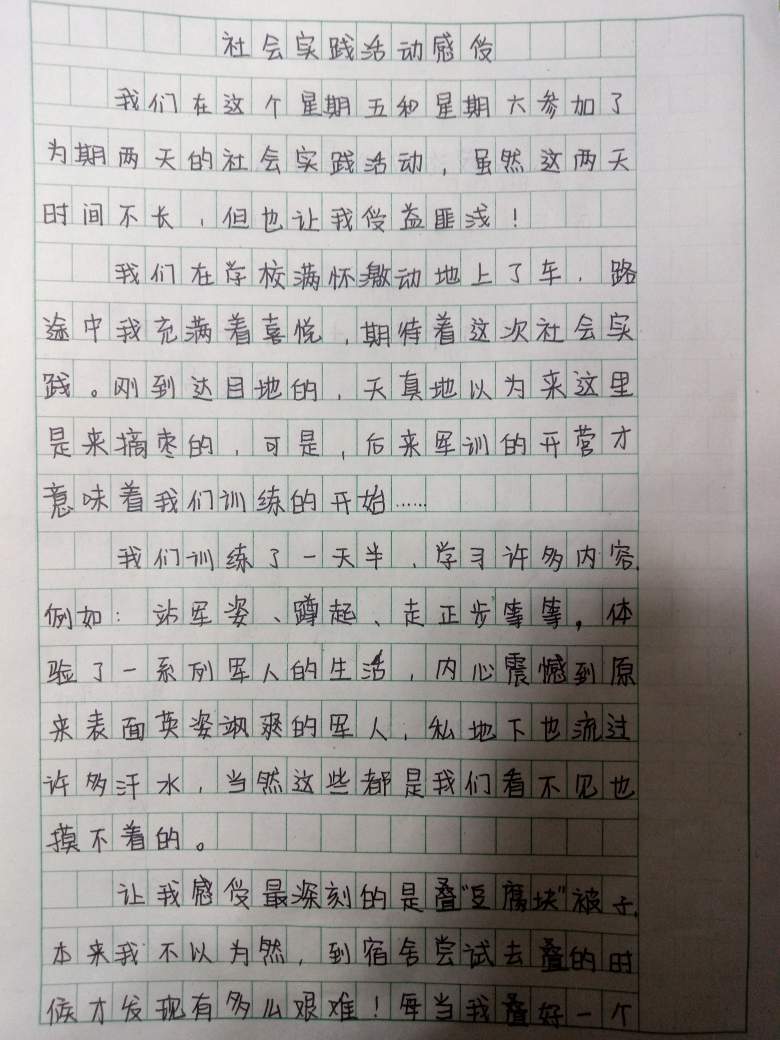 社会实践活动感受
我们在这个星期五和星期六参加了
为期两天的社会实践活动，虽然这两天
时间不长，但也让我受益匪浅！
我们在学校满怀激动地上了车，路
途中我充满着喜悦，期待着这次社会实
践。刚到达目地的，天真地以为来这里
是来摘枣的，可是，后来军训的开营才
意味着我们训练的开始……
我们训练了一天半，学习许多内容，
例如：站军姿、蹲起、走正步等等，体
验了一系列军人的生活，内心震憾到原
来表面英姿飒爽的军人，私地下也流过
许多汗水，当然这些都是我们看不见也
摸不着的。
让我感受最深刻的是叠“豆腐块”被子，
本来我不以为然，到宿舍尝试去叠的时
候才发现有多么艰难！每当我叠好一个